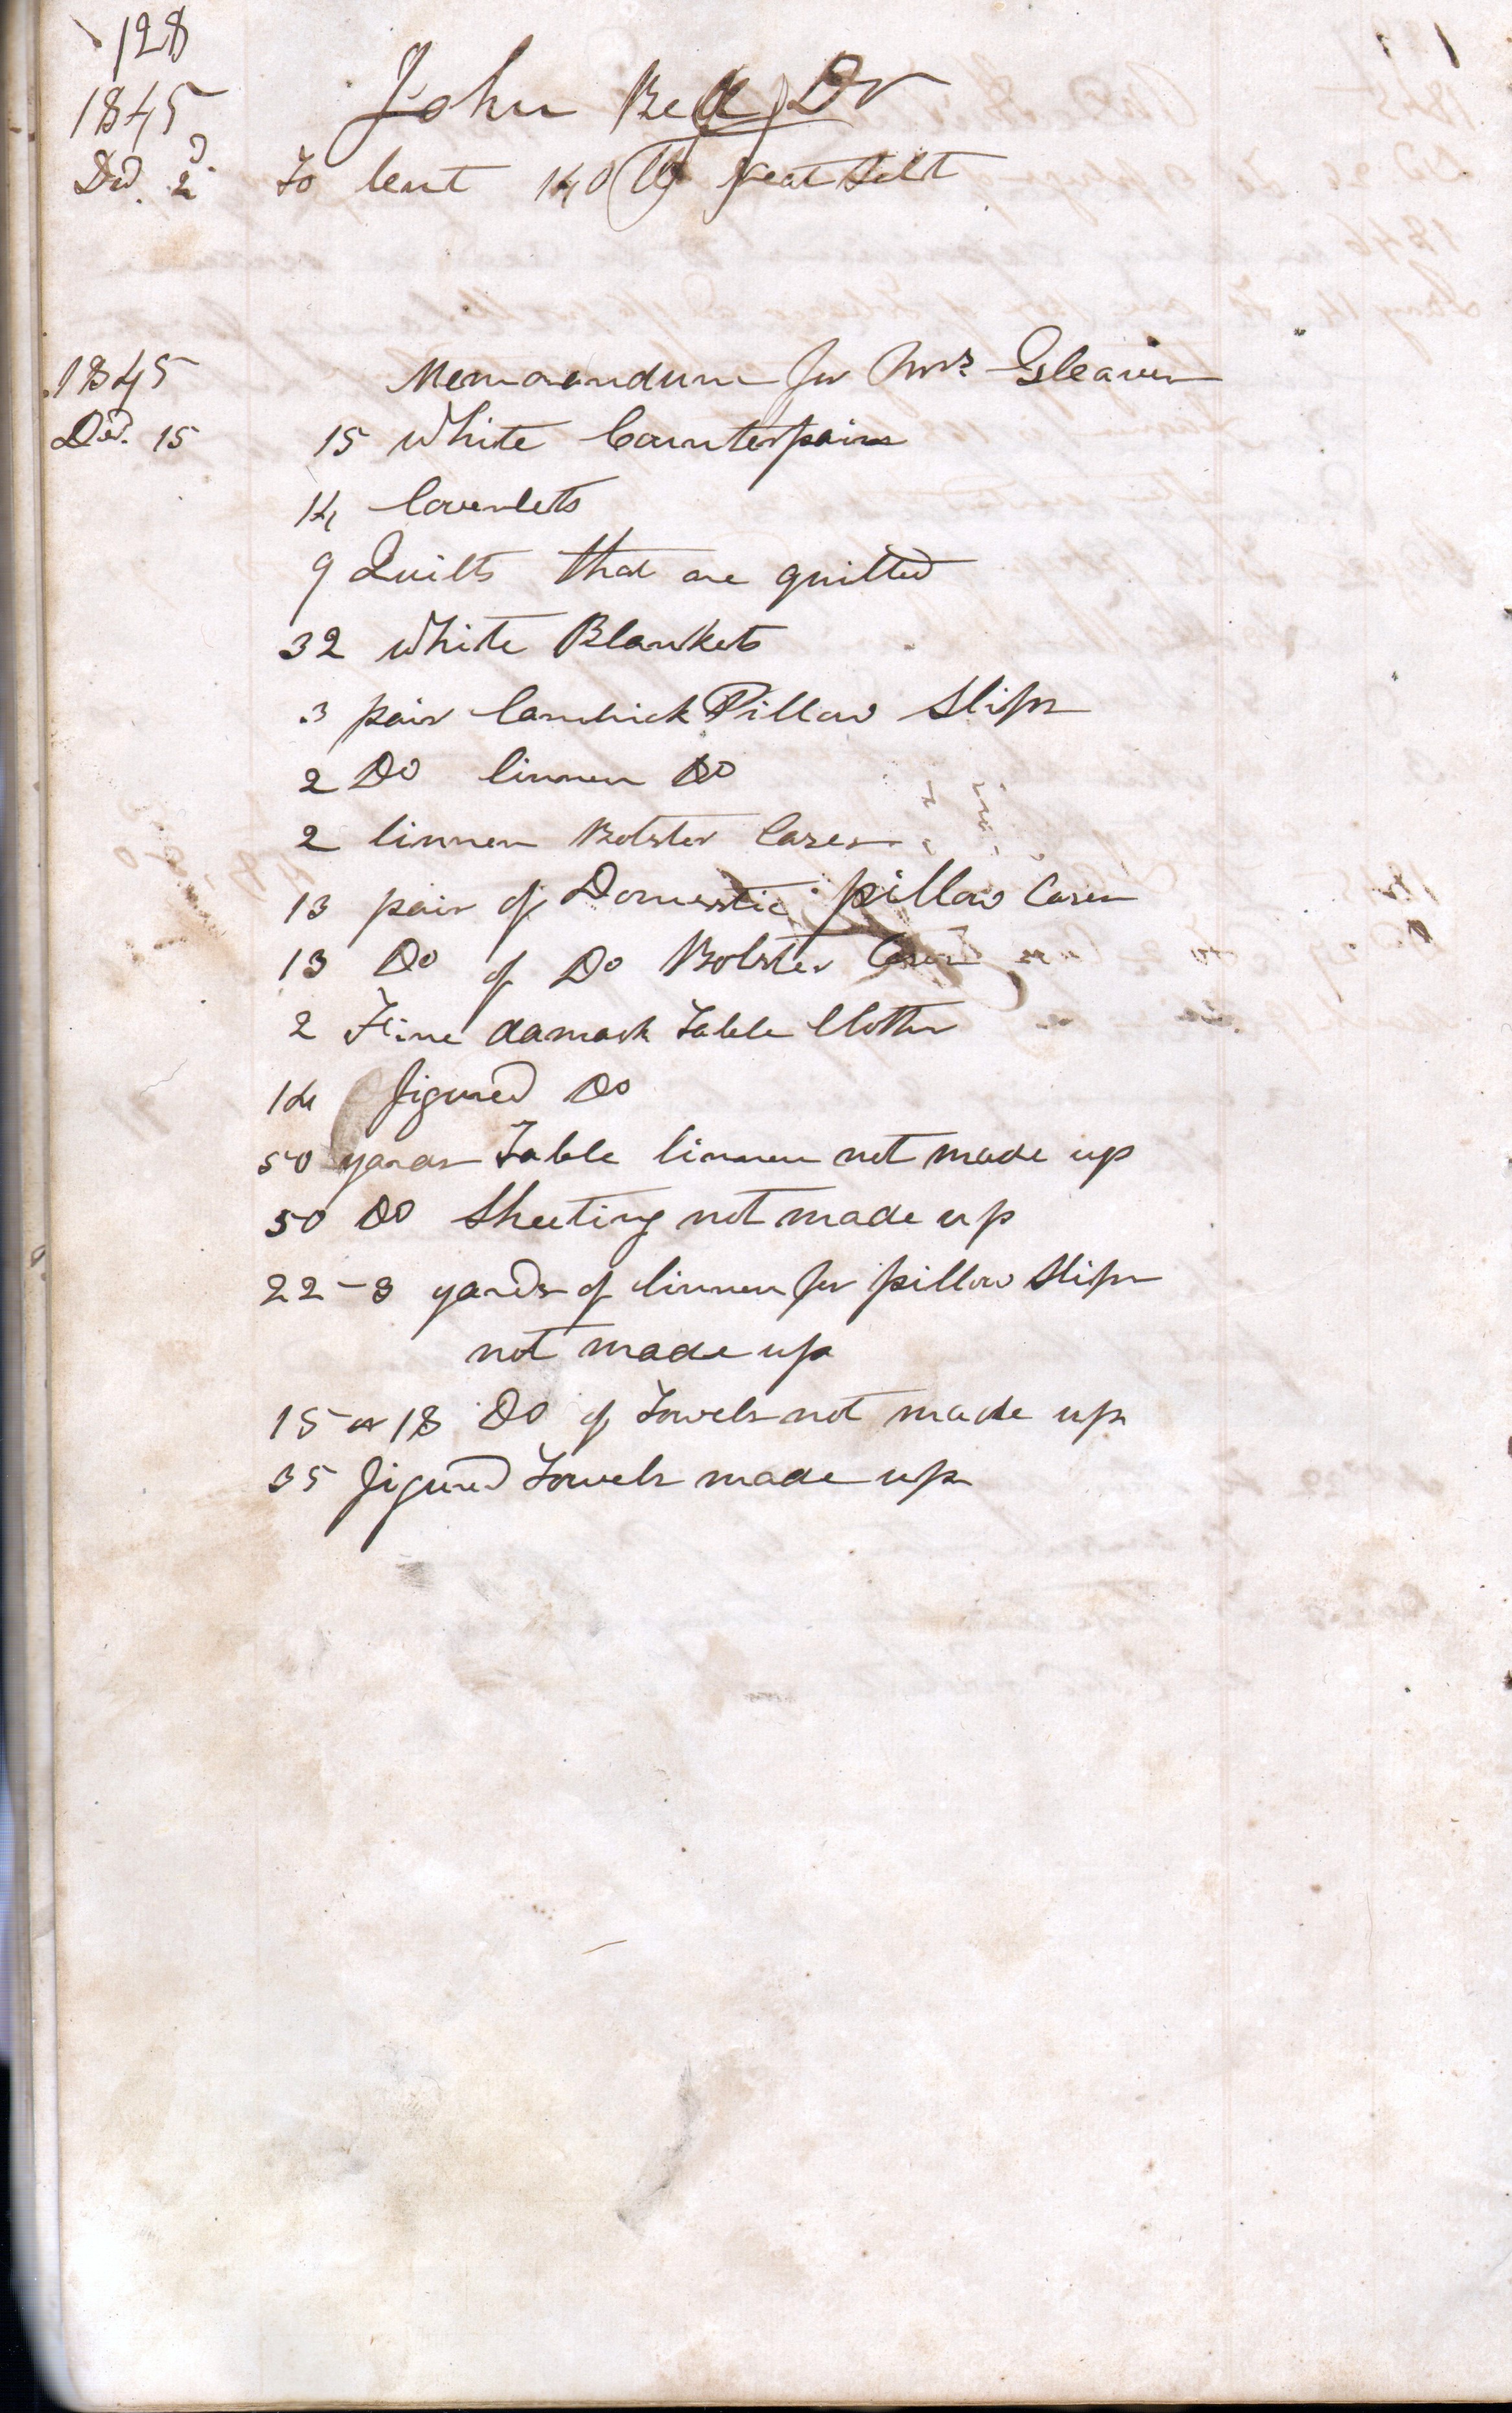 128
1845 John Bell Dr
Dec. 2d To lent 140 lb neat Salt
1845 Memorandum for Mrs. Gleaves
Dec. 15 15 White Counterpains
14 Coverlets
9 Quilts that are quilted
32 White Blankets
3 pair Cambrick Pillow Slips
2 Do linnen Do
2 linnen Bolster Cases
13 pair of Domestic pillow Cases
13 Do of Do Bolster Cases
2 Fine damask Table Cloths
14 figured Do
50 yards Table linnen not made up
50 Do Sheeting not made up
22-3 yards of linnen for pillow Slips
not made up
15 or 18 Do of Towels not made up
35 figured Towels made up